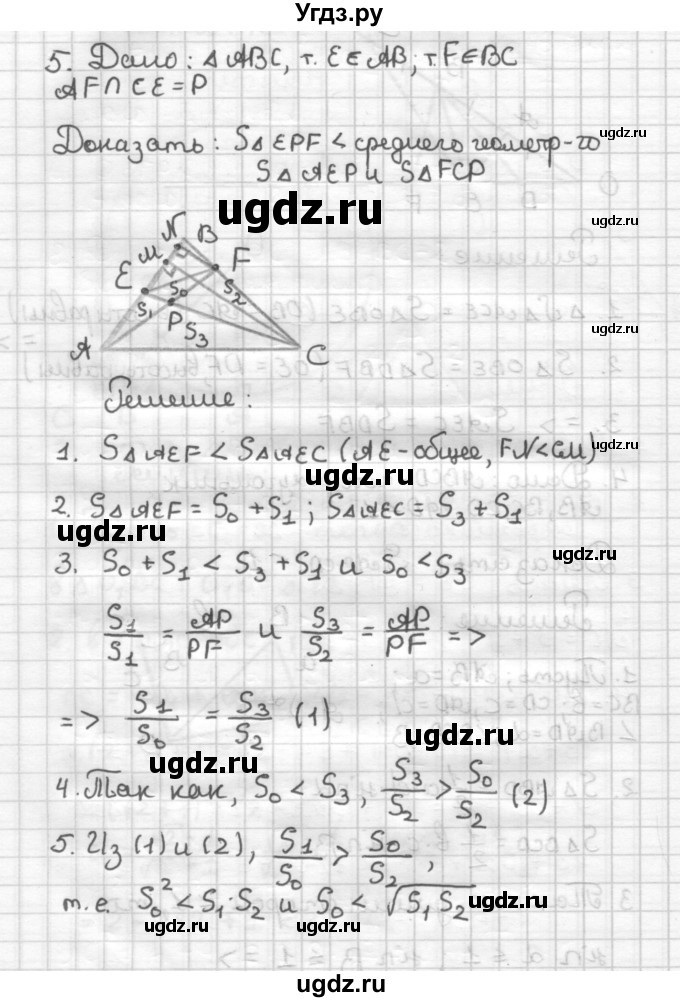 Угдз.ру
5. Дано: △ABC, т. E∈AB, т. F∈BC
AF∩CE=P
Доказать: S△EPF < среднего геометр-го
S△AEP и S△FCP
ugdz.ru
ugdz.ru
ugdz.ru
N B
M
E F
S₁ S₀ S₂
P S₃
A C
ugdz.ru
Решение:
ugdz.ru
1. S△AEF < S△AEC (AE-общее, FN<CM)
ugdz.ru
2. S△AEF = S₀ + S₁; S△AEC = S₃ + S₁
ugdz.ru
ugdz.ru
3. S₀ + S₁ < S₃ + S₁ и S₀ < S₃
S₁/S₁ = AP/PF и S₃/S₂ = AP/PF =>
ugdz.ru
=> S₁/S₀ = S₃/S₂ (1)
ugdz.ru
ugdz.ru
4. Так как, S₀ < S₃, S₃/S₂ > S₀/S₂ (2)
ugdz.ru
5. Из (1) и (2), S₁/S₀ > S₀/S₂,
ugdz.ru
т.е. S₀² < S₁·S₂ и S₀ < √S₁S₂
ugdz.ru
ugdz.ru
ugdz.ru